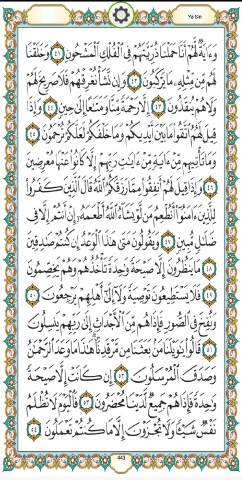 Ya Sin
وَءَايَةٌ لَّهُمْ أَنَّا حَمَلْنَا ذُرِّيَّتَهُمْ فِي الْفُلْكِ الْمَشْحُونِ ٤١ وَخَلَقْنَا
لَهُم مِّن مِّثْلِهِ مَا يَرْكَبُونَ ٤٢ وَإِن نَّشَأْ نُغْرِقْهُمْ فَلَا صَرِيخَ لَهُمْ
وَلَا هُمْ يُنقَذُونَ ٤٣ إِلَّا رَحْمَةً مِّنَّا وَمَتَاعًا إِلَىٰ حِينٍ ٤٤ وَإِذَا
قِيلَ لَهُمُ اتَّقُوا مَا بَيْنَ أَيْدِيكُمْ وَمَا خَلْفَكُمْ لَعَلَّكُمْ تُرْحَمُونَ ٤٥
وَمَا تَأْتِيهِم مِّنْ ءَايَةٍ مِّنْ ءَايَاتِ رَبِّهِمْ إِلَّا كَانُوا عَنْهَا مُعْرِضِينَ
٤٦ وَإِذَا قِيلَ لَهُمْ أَنفِقُوا مِمَّا رَزَقَكُمُ اللَّهُ قَالَ الَّذِينَ كَفَرُوا
لِلَّذِينَ ءَامَنُوا أَنُطْعِمُ مَن لَّوْ يَشَاءُ اللَّهُ أَطْعَمَهُ إِنْ أَنتُمْ إِلَّا فِي
ضَلَالٍ مُّبِينٍ ٤٧ وَيَقُولُونَ مَتَىٰ هَٰذَا الْوَعْدُ إِن كُنتُمْ صَادِقِينَ
٤٨ مَا يَنظُرُونَ إِلَّا صَيْحَةً وَاحِدَةً تَأْخُذُهُمْ وَهُمْ يَخِصِّمُونَ
٤٩ فَلَا يَسْتَطِيعُونَ تَوْصِيَةً وَلَا إِلَىٰ أَهْلِهِمْ يَرْجِعُونَ ٥٠
وَنُفِخَ فِي الصُّورِ فَإِذَا هُم مِّنَ الْأَجْدَاثِ إِلَىٰ رَبِّهِمْ يَنسِلُونَ
٥١ قَالُوا يَٰوَيْلَنَا مَن بَعَثَنَا مِن مَّرْقَدِنَا هَٰذَا مَا وَعَدَ الرَّحْمَٰنُ
وَصَدَقَ الْمُرْسَلُونَ ٥٢ إِن كَانَتْ إِلَّا صَيْحَةً
وَاحِدَةً فَإِذَا هُمْ جَمِيعٌ لَّدَيْنَا مُحْضَرُونَ ٥٣ فَالْيَوْمَ لَا تُظْلَمُ
نَفْسٌ شَيْئًا وَلَا تُجْزَوْنَ إِلَّا مَا كُنتُمْ تَعْمَلُونَ ٥٤
443